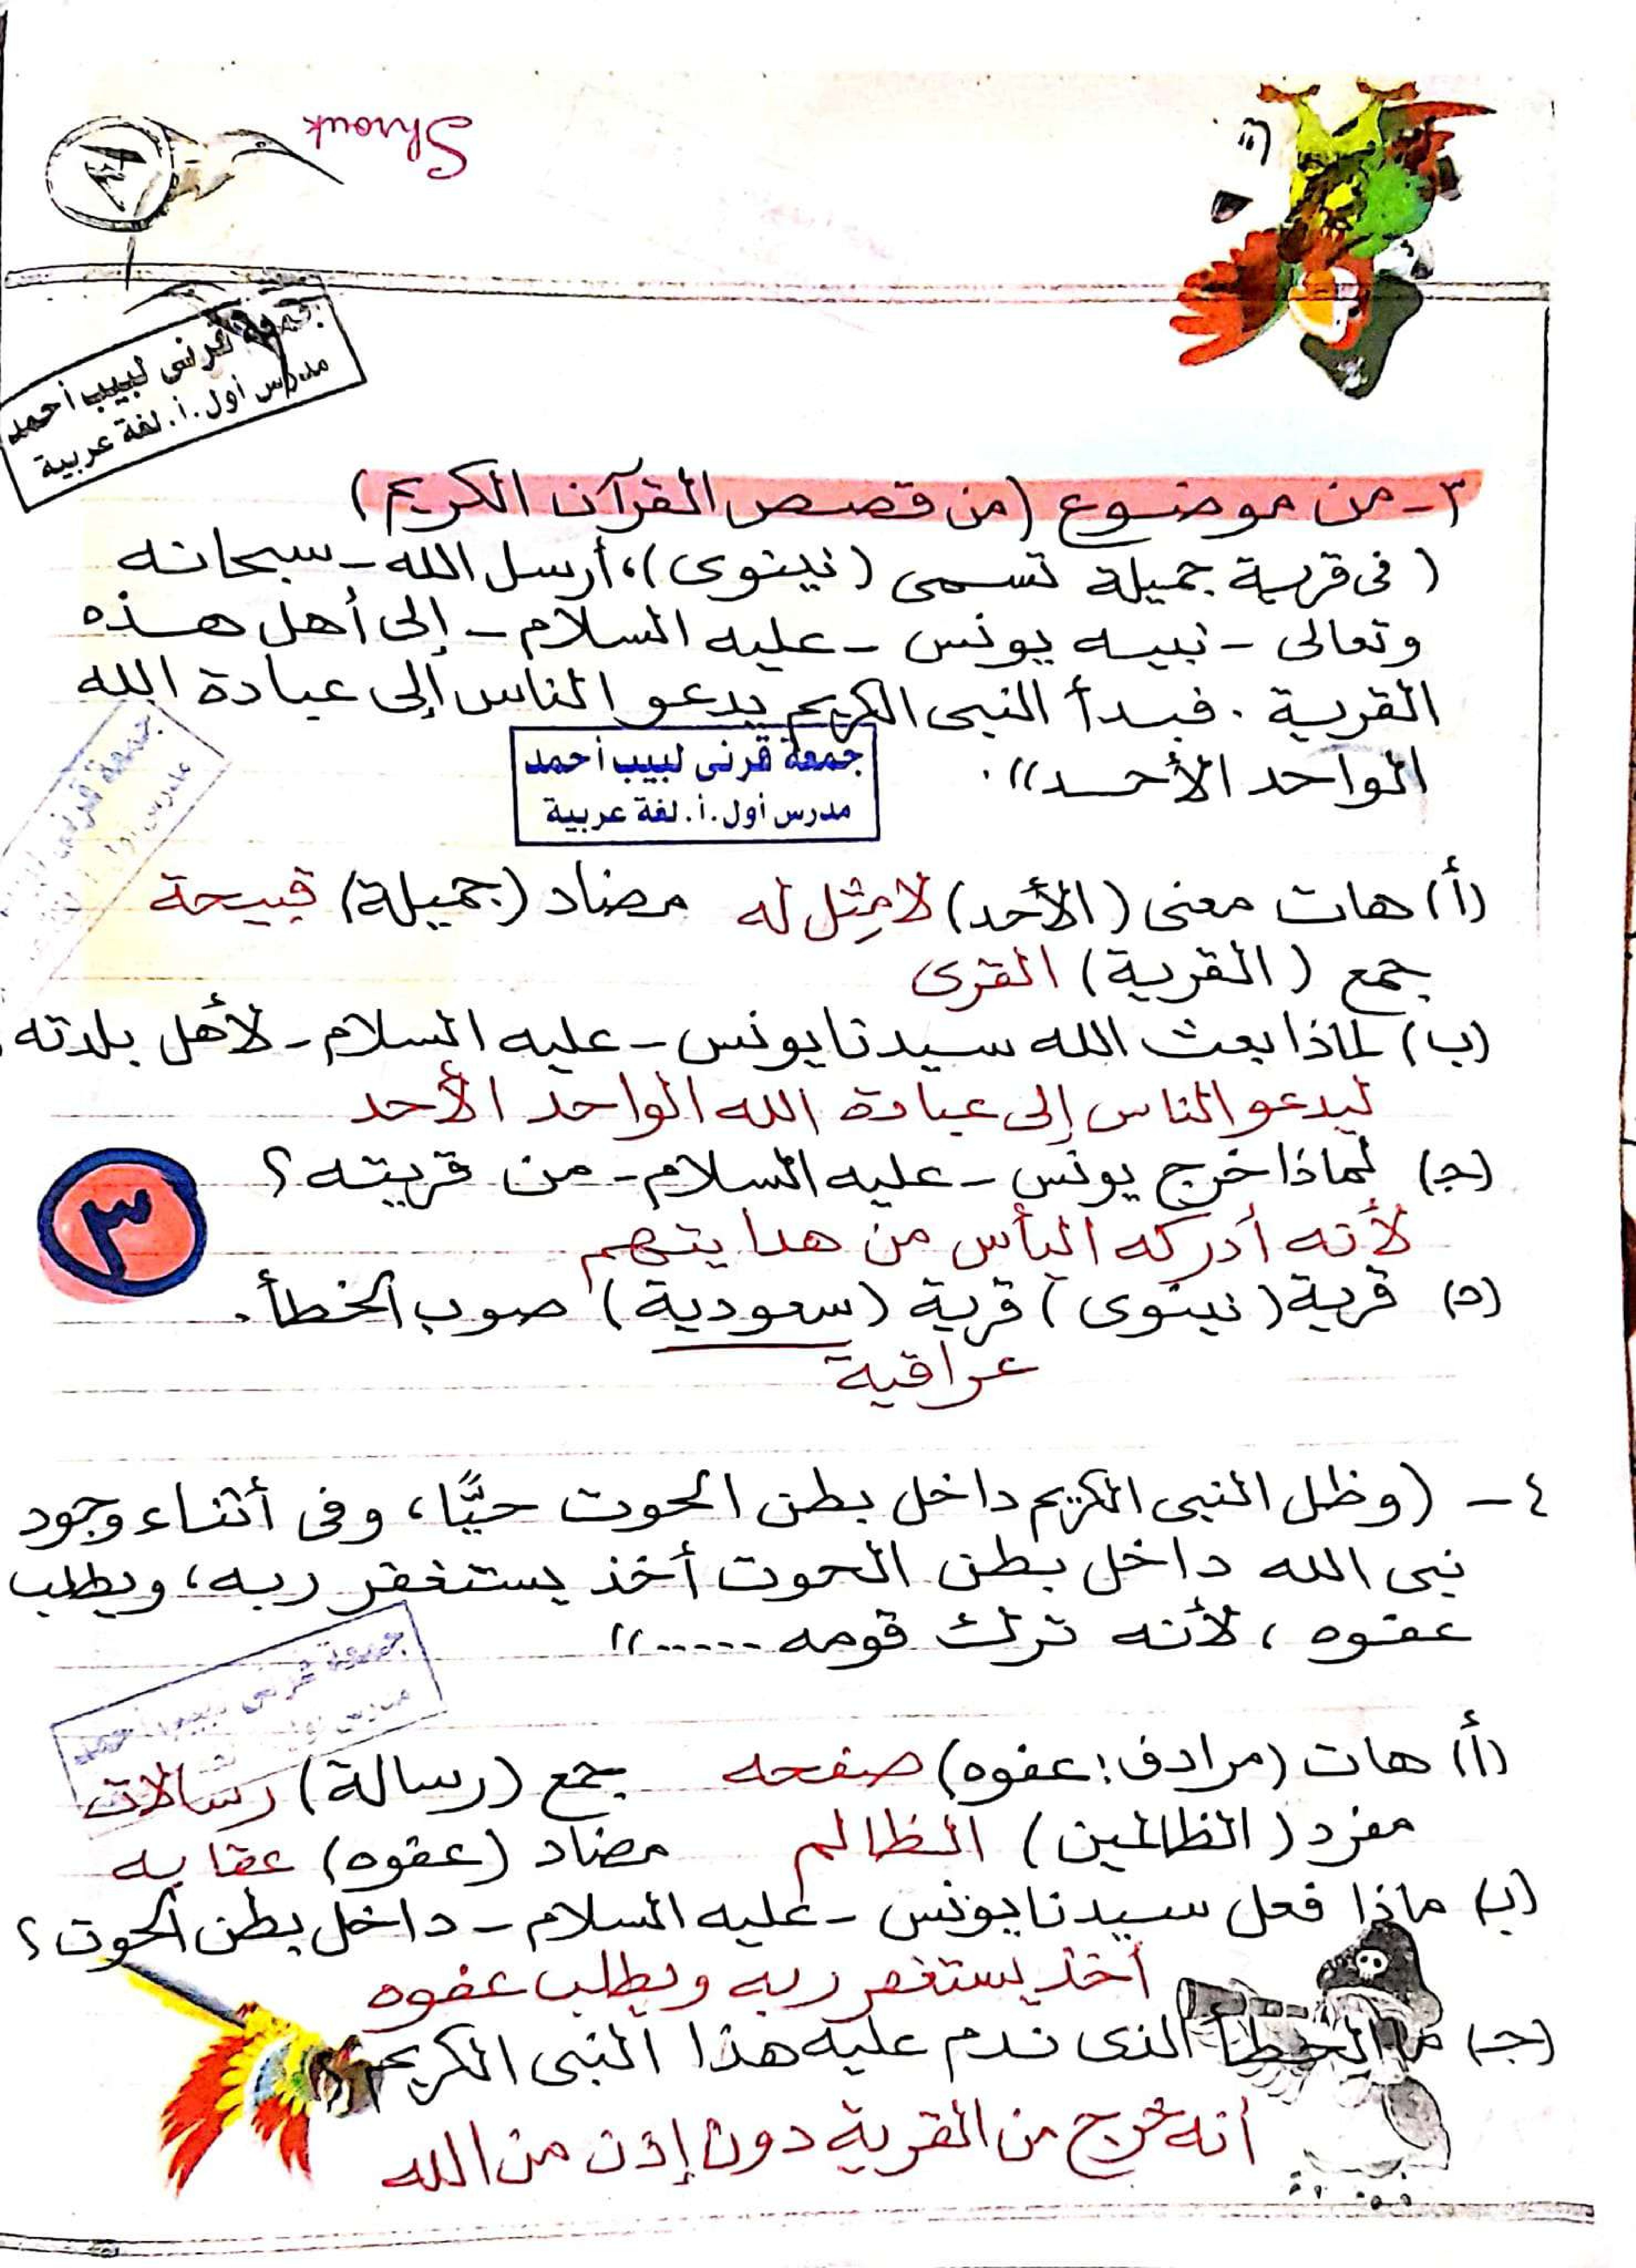 Shrouk
جمعة قرنى لبيب أحمد
مدرس أول.أ.لغة عربية
٣- من موضوع (من قصص القرآن الكريم)
( فى قرية جميلة تسمى (نينوى)،،أرسل الله - سبحانه
وتعالى - نبيه يونس - عليه السلام - إلى أهل هذه
القرية . فبدأ النبى الكريم يدعو الناس إلى عبادة الله
الواحد الأحد)) .
جمعة قرنى لبيب أحمد
مدرس أول.أ.لغة عربية
(أ) هات معنى (الأحد) لا مِثل له مضاد (جميلة) قبيحة
جمع (القرية) القرى
(ب) لماذا بعث الله سيدنا يونس - عليه السلام - لأهل بلدته
ليدعو الناس إلى عبادة الله الواحد الأحد
(جـ) لماذا خرج يونس - عليه السلام - من قريته ؟
لأنه أدركه اليأس من هدايتهم
٣
(د) قرية (نينوى) قرية (سعودية) صوب الخطأ .
عراقية
٤ - (وظل النبى الكريم داخل بطن الحوت حيًّا، وفى أثناء وجود
نبى الله داخل بطن الحوت أخذ يستغفر ربه، ويطلب
عفوه ، لأنه ترك قومه .....))
جمعة قرنى لبيب أحمد
(أ) هات (مرادف: عفوه) صفحه جمع (رسالة) رسالات
مفرد (الظالمين) الظالم مضاد (عفوه) عقابه
(ب) ماذا فعل سيدنا يونس - عليه السلام - داخل بطن الحوت ؟
أخذ يستغفر ربه ويطلب عفوه
(جـ) ما الخطأ الذى ندم عليه هذا النبى الكريم
أنه خرج من القرية دون إذن من الله